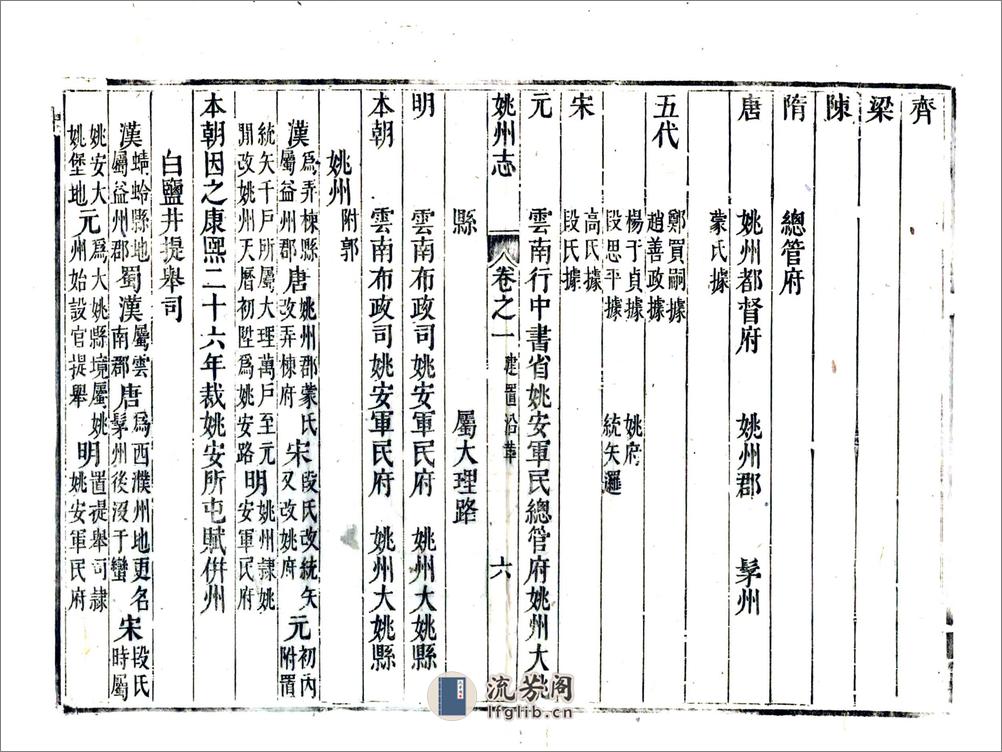 齊
梁
陳
隋 總管府
唐 姚州都督府 姚州郡 髳州
蒙氏據
五代 鄭買嗣據
趙善政據
楊于貞據 姚府
段思平據 統矢邏
宋 高氏據
段氏據
元 雲南行中書省姚安軍民總管府姚州大姚
姚州志 卷之一 建置沿革 六
縣 屬大理路
明 雲南布政司姚安軍民府 姚州大姚縣
本朝 雲南布政司姚安軍民府 姚州大姚縣
姚州附郭
漢爲弄棟縣屬益州郡唐姚州郡蒙氏改弄棟府宋段氏改統矢又改姚府元初內附置
統矢千戶所屬大理萬戶至元間改姚州天曆初陞爲姚安路明姚州隷姚安軍民府
本朝因之康熙二十六年裁姚安所屯賦併州
白鹽井提舉司
漢蜻蛉縣地屬益州郡蜀漢屬雲南郡唐爲西濮州地更名髳州後沒于蠻宋段氏時屬
姚安大姚堡地元爲大姚縣境屬姚州始設官提舉明置提舉司隷姚安軍民府
流芳阁
lfglib.cn